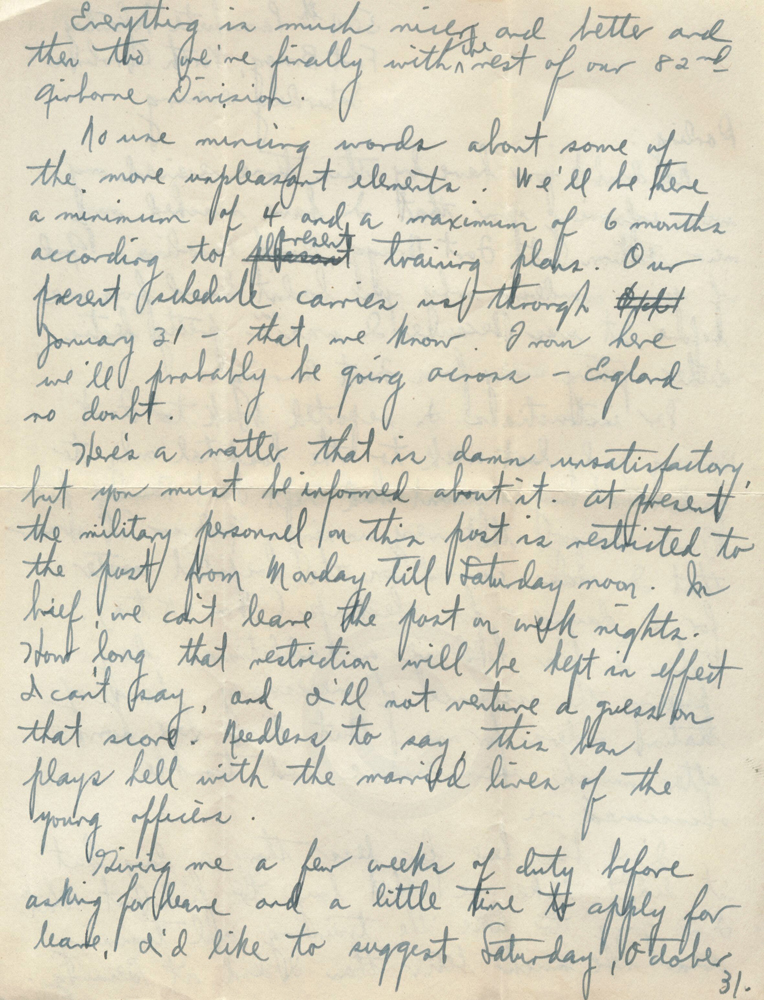 Everything is much nicer and better and
then too we're finally with the rest of our 82nd
Airborne Division.
No use mincing words about some of
the more unpleasant elements. We'll be here
a minimum of 4 and a maximum of 6 months
according to pleasant present training plans. Our
present schedule carries us through Sept
January 31 - that we know. From here
we'll probably be going across - England
no doubt.
Here's a matter that is damn unsatisfactory,
but you must be informed about it. At present
the military personnel on this post is restricted to
the post from Monday till Saturday noon. In
brief, we can't leave the post on week nights.
How long that restriction will be kept in effect
I can't say, and I'll not venture a guess on
that score. Needless to say, this ban
plays hell with the married lives of the
young officers.
Giving me a few weeks of duty before
asking for leave and a little time to apply for
leave, I'd like to suggest Saturday, October
31.